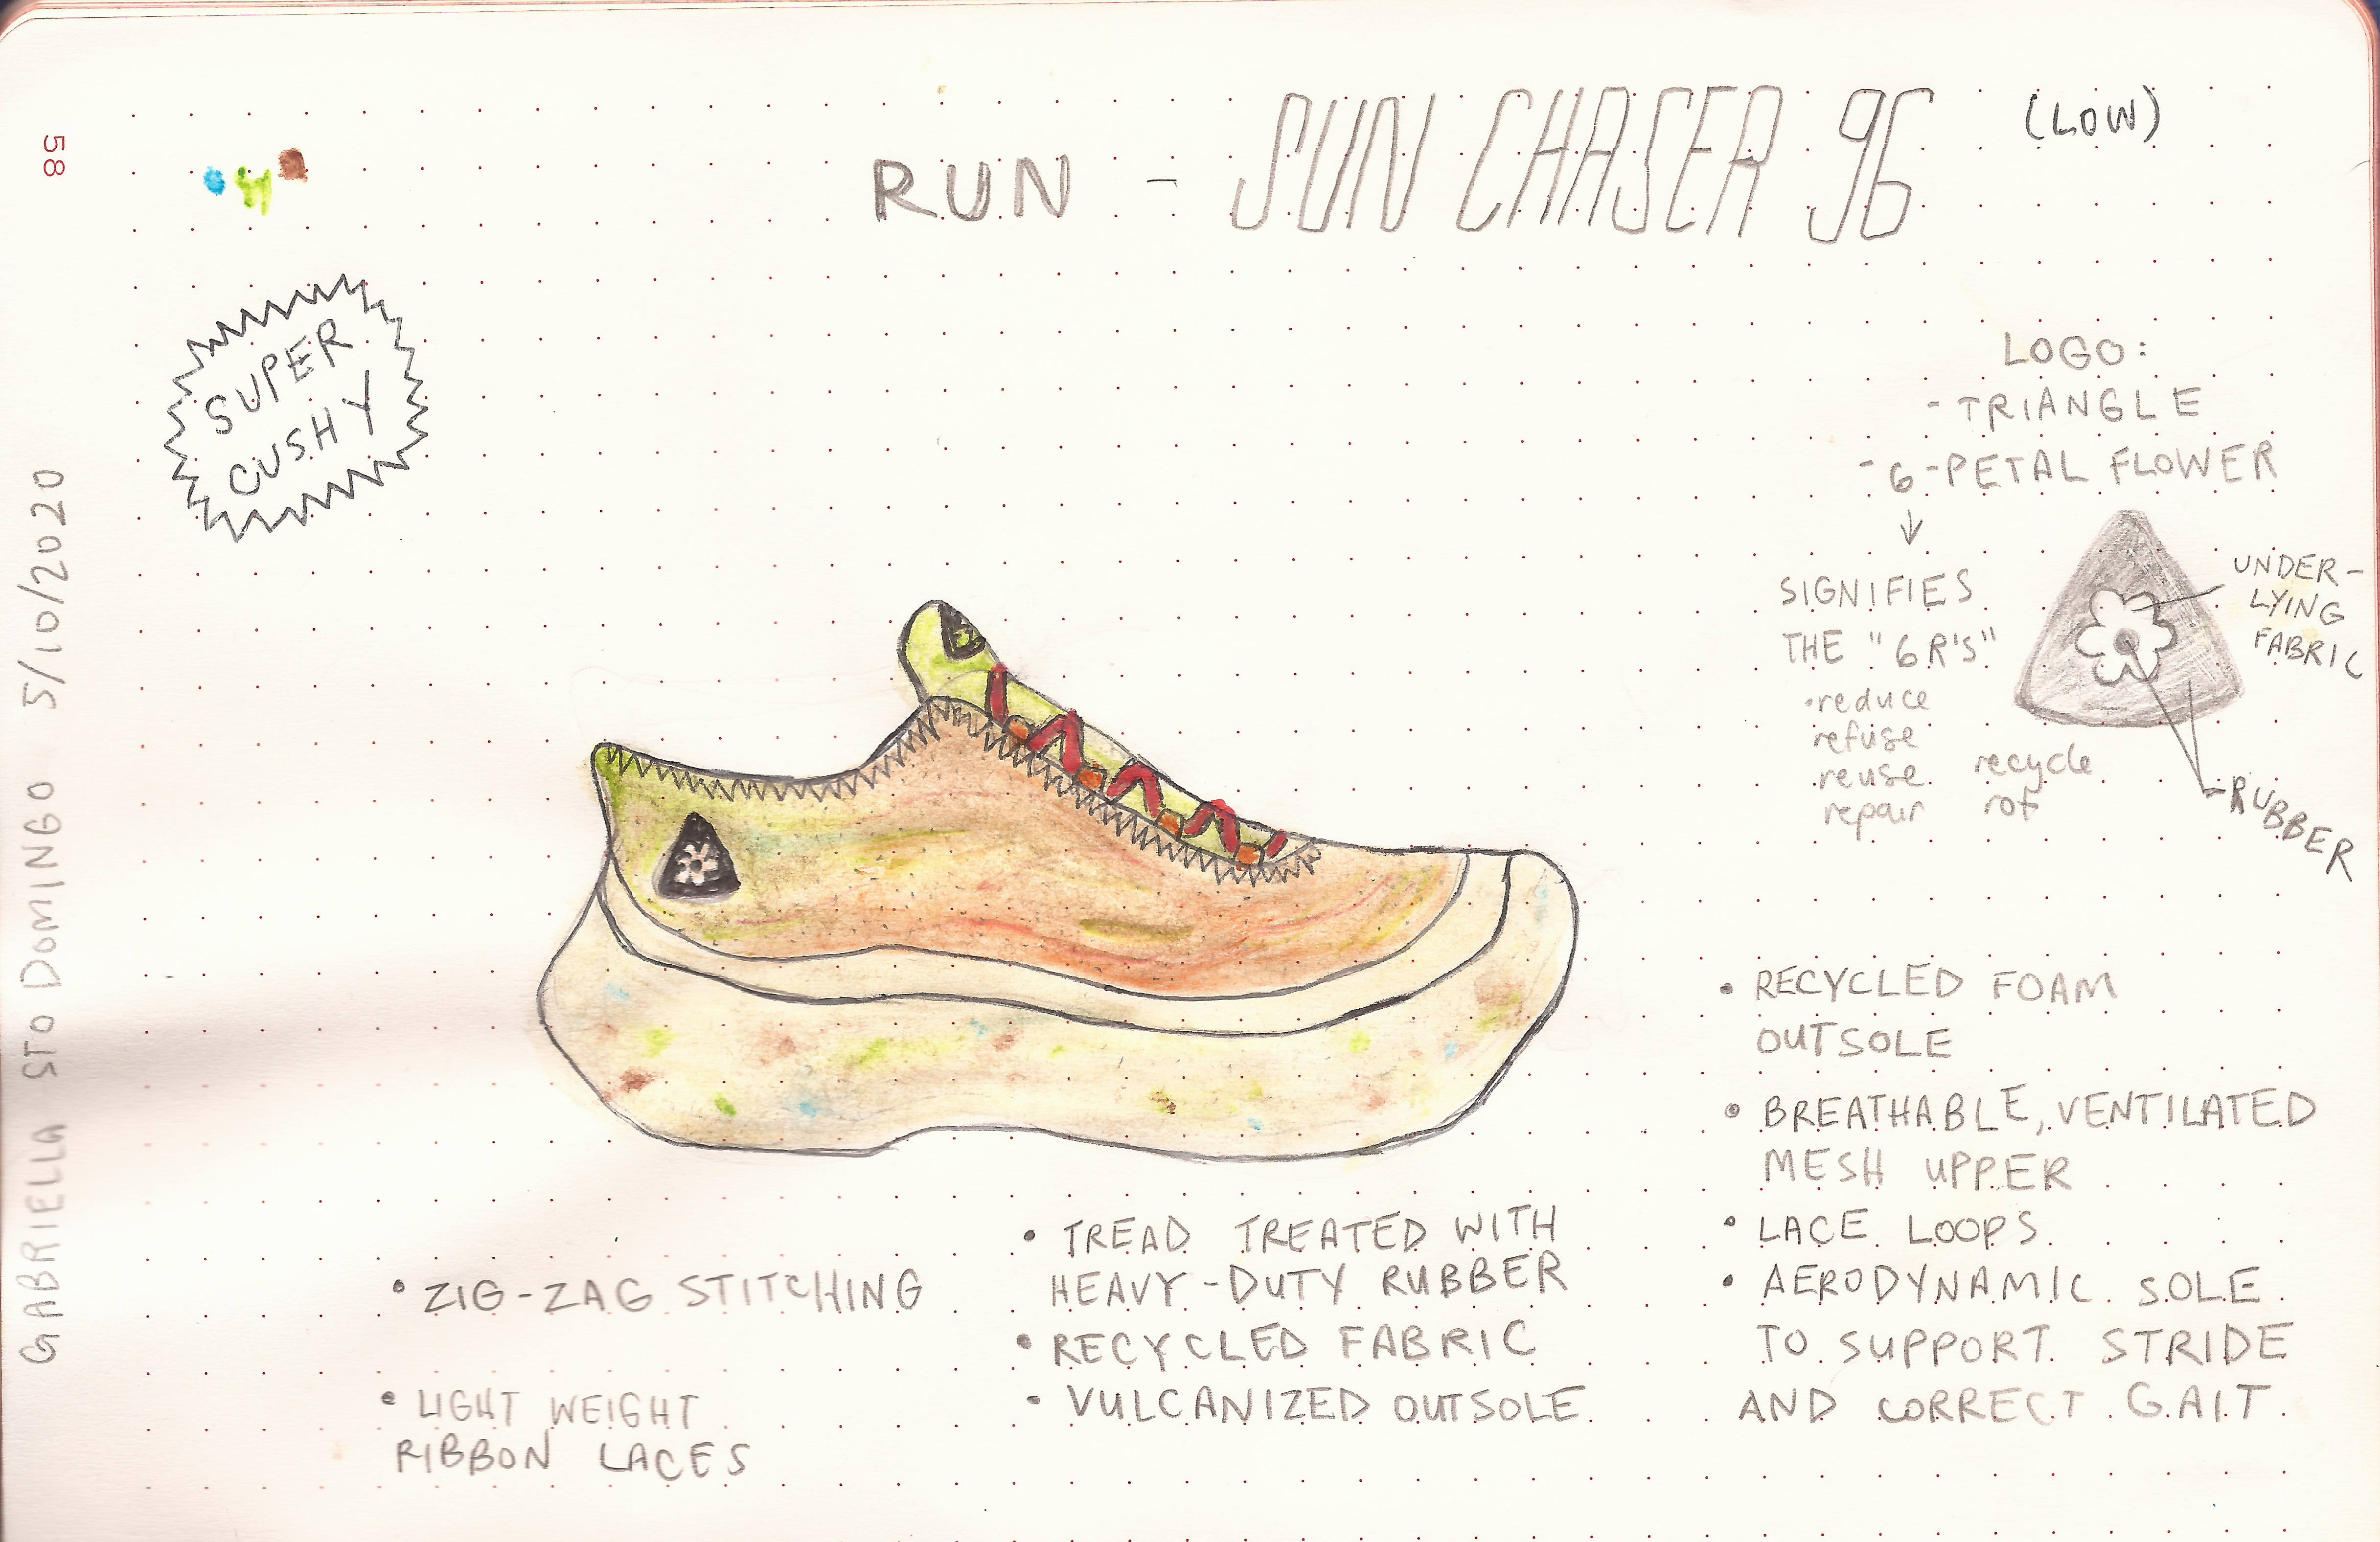 58
RUN - SUN CHASER 96 (LOW)
SUPER
CUSHY
GABRIELLA STO DOMINGO 5/10/2020
LOGO:
- TRIANGLE
- 6-PETAL FLOWER
↓
SIGNIFIES
THE "6 R'S"
• reduce
refuse
reuse
repair
recycle
rot
UNDER-
LYING
FABRIC
RUBBER
• ZIG-ZAG STITCHING
• LIGHT WEIGHT
RIBBON LACES
• TREAD TREATED WITH
HEAVY-DUTY RUBBER
• RECYCLED FABRIC
• VULCANIZED OUTSOLE
• RECYCLED FOAM
OUTSOLE
• BREATHABLE, VENTILATED
MESH UPPER
• LACE LOOPS
• AERODYNAMIC SOLE
TO SUPPORT STRIDE
AND CORRECT GAIT